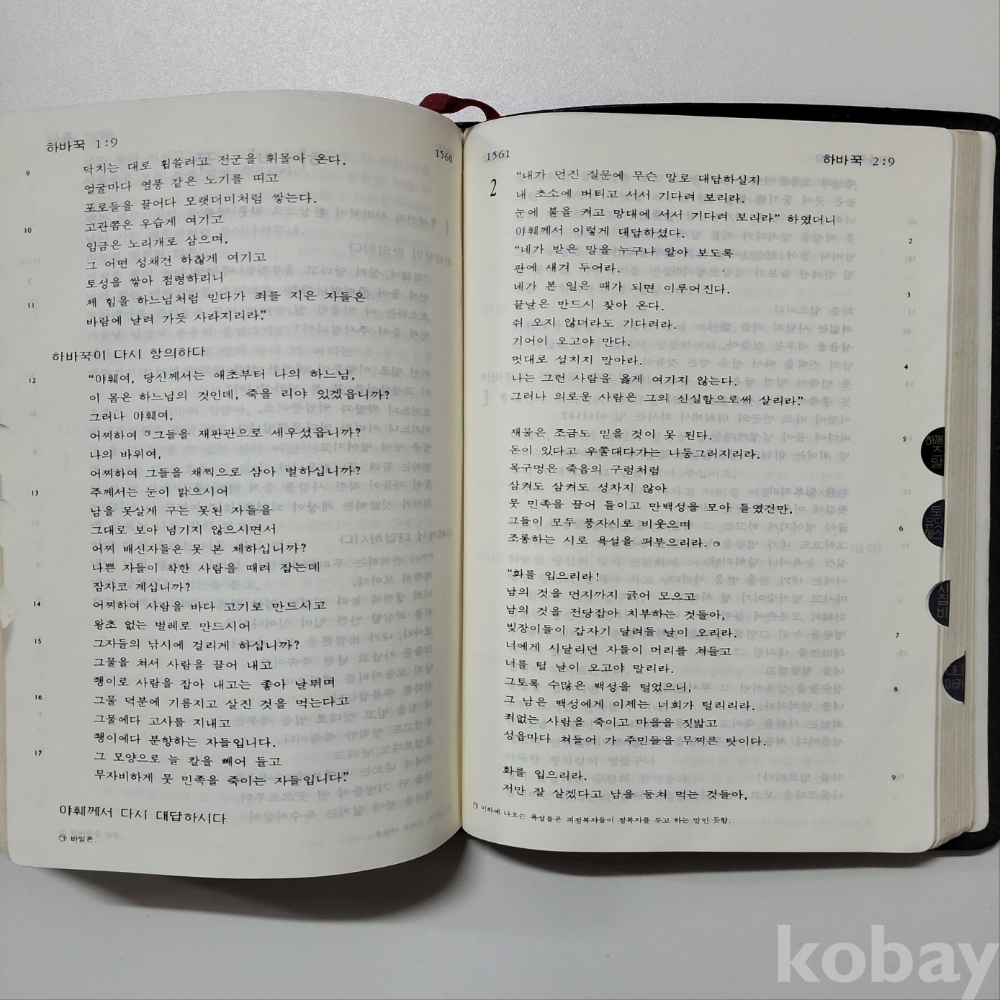 하바꾹 1:9
1560
9 닥치는 대로 휩쓸려고 전군을 휘몰아 온다.
얼굴마다 열풍 같은 노기를 띠고
포로들을 끌어다 모랫더미처럼 쌓는다.
10 고관쯤은 우습게 여기고
임금은 노리개로 삼으며,
그 어떤 성채건 하찮게 여기고
토성을 쌓아 점령하리니
11 제 힘을 하느님처럼 믿다가 죄를 지은 자들은
바람에 날려 가듯 사라지리라."
하바꾹이 다시 항의하다
12 "야훼여, 당신께서는 애초부터 나의 하느님,
이 몸은 하느님의 것인데, 죽을 리야 있겠읍니까?
그러나 야훼여,
어찌하여 ㉠그들을 재판관으로 세우셨읍니까?
나의 바위여,
어찌하여 그들을 채찍으로 삼아 벌하십니까?
13 주께서는 눈이 맑으시어
남을 못살게 구는 못된 자들을
그대로 보아 넘기지 않으시면서
어찌 배신자들은 못 본 체하십니까?
나쁜 자들이 착한 사람을 때려 잡는데
잠자코 계십니까?
14 어찌하여 사람을 바다 고기로 만드시고
왕초 없는 벌레로 만드시어
15 그자들의 낚시에 걸리게 하십니까?
그물을 쳐서 사람을 끌어 내고
쟁이로 사람을 잡아 내고는 좋아 날뛰며
16 그물 덕분에 기름지고 살진 것을 먹는다고
그물에다 고사를 지내고
쟁이에다 분향하는 자들입니다.
17 그 모양으로 늘 칼을 빼어 들고
무자비하게 뭇 민족을 죽이는 자들입니다."
야훼께서 다시 대답하시다
㉠ 바빌론.
1561
하바꾹 2:9
2 "내가 던진 질문에 무슨 말로 대답하실지
내 초소에 버티고 서서 기다려 보리라.
눈에 불을 켜고 망대에 서서 기다려 보리라" 하였더니
야훼께서 이렇게 대답하셨다. 2
"네가 받은 말을 누구나 알아 보도록
판에 새겨 두어라.
네가 본 일은 때가 되면 이루어진다. 3
끝날은 반드시 찾아 온다.
쉬 오지 않더라도 기다려라.
기어이 오고야 만다.
멋대로 설치지 말아라. 4
나는 그런 사람을 옳게 여기지 않는다.
그러나 의로운 사람은 그의 신실함으로써 살리라."
재물은 조금도 믿을 것이 못 된다. 5
돈이 있다고 우쭐대다가는 나둥그러지리라.
목구멍은 죽음의 구렁처럼
삼켜도 삼켜도 성차지 않아
뭇 민족을 끌어 들이고 만백성을 모아 들였건만,
그들이 모두 풍자시로 비웃으며 6
조롱하는 시로 욕설을 퍼부으리라. ㉠
"화를 입으리라!
남의 것을 먼지까지 긁어 모으고
남의 것을 전당잡아 치부하는 것들아,
빚장이들이 갑자기 달려들 날이 오리라. 7
너에게 시달리던 자들이 머리를 쳐들고
너를 털 날이 오고야 말리라.
그토록 수많은 백성을 털었으니, 8
그 남은 백성에게 이제는 너희가 털리리라.
죄없는 사람을 죽이고 마을을 짓밟고
성읍마다 쳐들어 가 주민들을 무찌른 탓이다.
화를 입으리라. 9
저만 잘 살겠다고 남을 등쳐 먹는 것들아,
㉠ 이하에 나오는 욕설들은 피정복자들이 정복자를 두고 하는 말인 듯함.
kobay